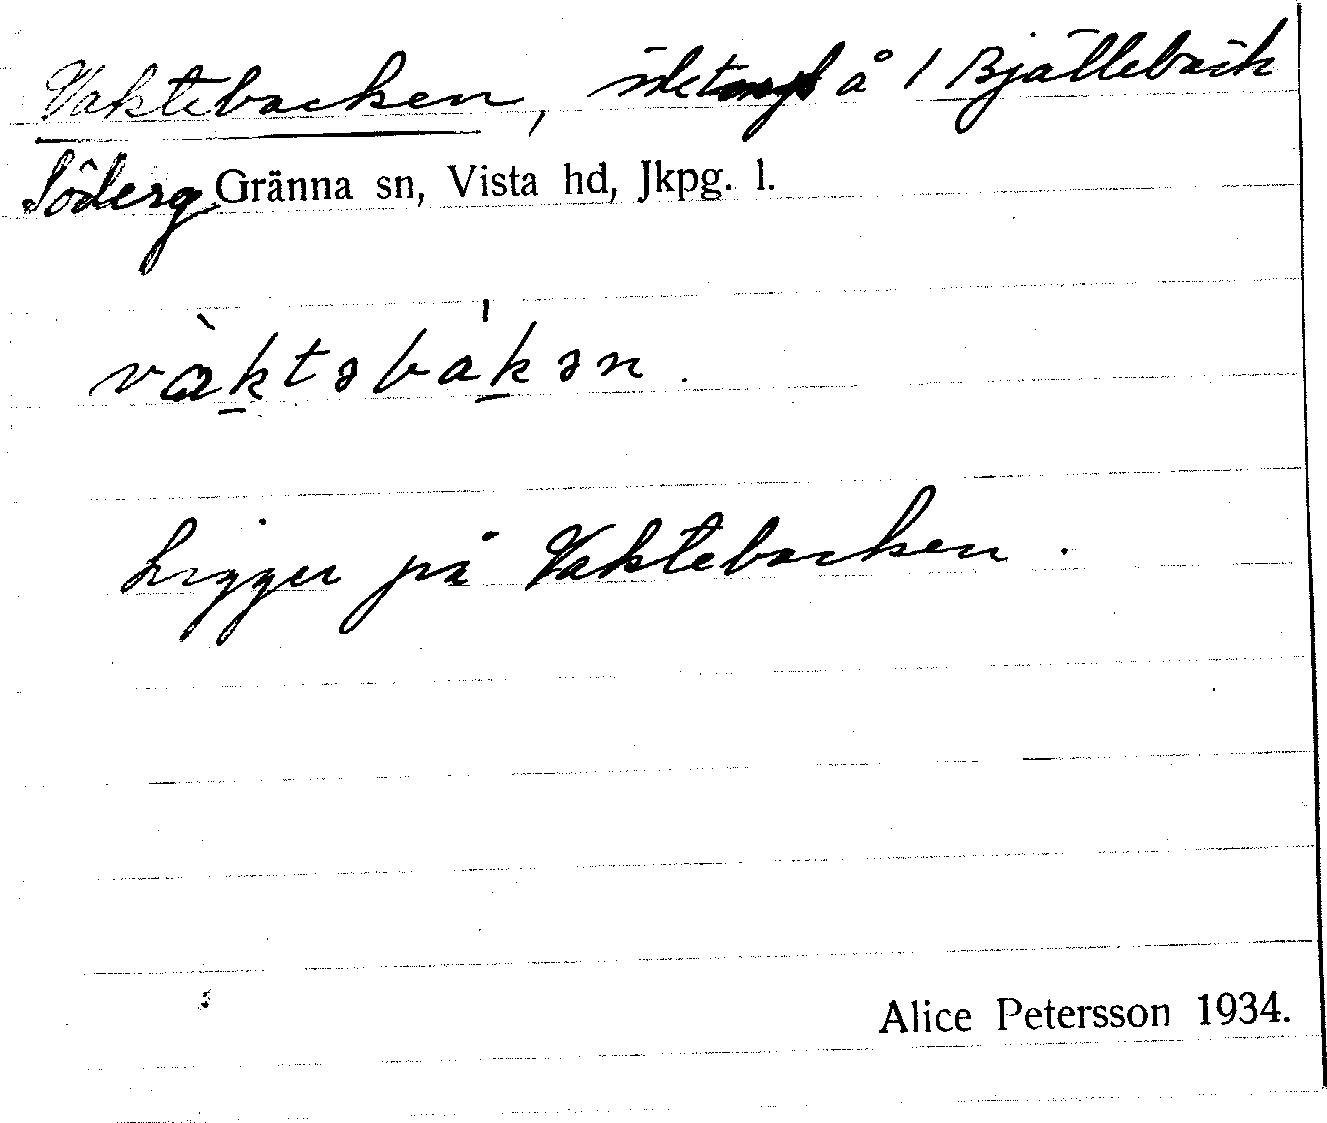 Vaktebacken, å 1 Bjällebäck
Söderg Gränna sn, Vista hd, Jkpg. l.
vàktəbákən.
Ligger på Vaktebacken.
Alice Petersson 1934.